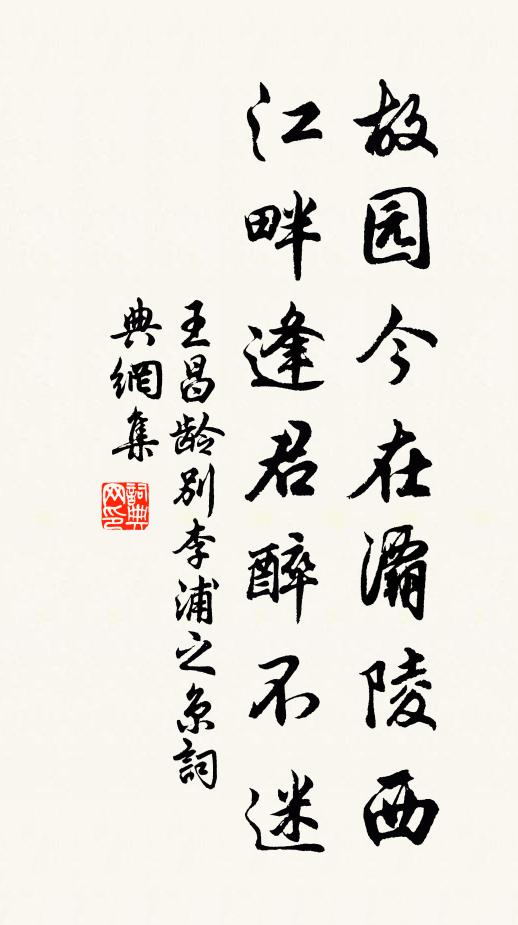 故园今在灞陵西
江畔逢君醉不迷
王昌龄别李浦之京詞
典網集
詞典网印